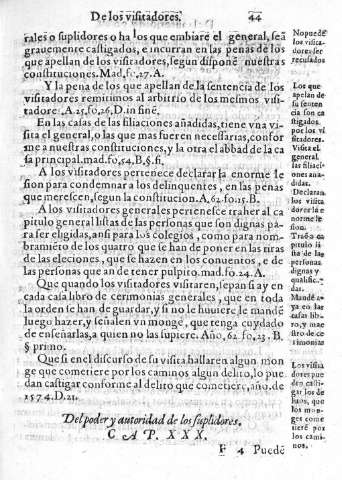 De los visitadores. 44
rales o suplidores o ha los que embiare el general, seã
grauemente castigados, e incurran en las penas de los
que apellan de los visitadores, segun disponẽ nuestras
constituciones. Mad. fo. 27. A.
Y la pena de los que apellan de la sentencia de los
visitadores remitimos al arbitrio de los mesmos visi-
tadores. A. 25. fo. 26. D. in fine.
En las casas de las filiaciones añadidas, tiene vna vi-
sita el general, o las que mas fueren necessarias, confor
me a nuestras constituciones, y la otra el abbad de la ca
sa principal. mad. fo, 54, B, §. fi.
A los visitadores pertenece declarar la enorme le
sion para condemnar a los delinquentes, en las penas
que merescen, segun la constitucion. A, 62. fo. 15. B.
A los visitadores generales pertenesce traher al ca
pitulo general listas de las personas que son dignas pa-
ra ser eligidas, ansi para los colegios, como para nom-
bramiẽto de los quatro que se han de poner en las tiras
de las eleciones, que se hazen en los conuentos, e de
las personas que an de tener pulpito. mad. fo. 24. A.
Que quando los visitadores visitaren, sepan si ay en
cada casa libro de cerimonias generales, que en toda
la orden se han de guardar, y si no le huuiere le mandẽ
luego hazer, y señalen vn monge, que tenga cuydado
de enseñarlas, a quien no las supiere. Año, 62. fo. 23. B.
§ primo.
Que si en el discurso de su visita hallaren algun mon
ge que cometiere por los caminos algun delito, lo pue
dan castigar conforme al delito que cometiere, año, de
1574. D. 21.
Del poder y autoridad de los suplidores.
C A P. XXX.
F 4 Puedẽ
No puedẽ
los visita-
dores ser
recusados
Los que
apelan de
su senten
cia son ca
stigados.
por los vi
sitadores.
Visita el
general.
las filiacio
nes aña-
didas.
Declaran
los visita
dores la e
norme le-
sion.
Traẽ a ca
pitulo lis
ta de las
personas
dignas y
qualifica-
das.
Mandẽ a-
ya en las
casas libro
de ce-
rimonias
Los visita
dores pue
den casti-
gar los de
litos, que
los mon-
ges come
tierẽ por
los cami-
nos.